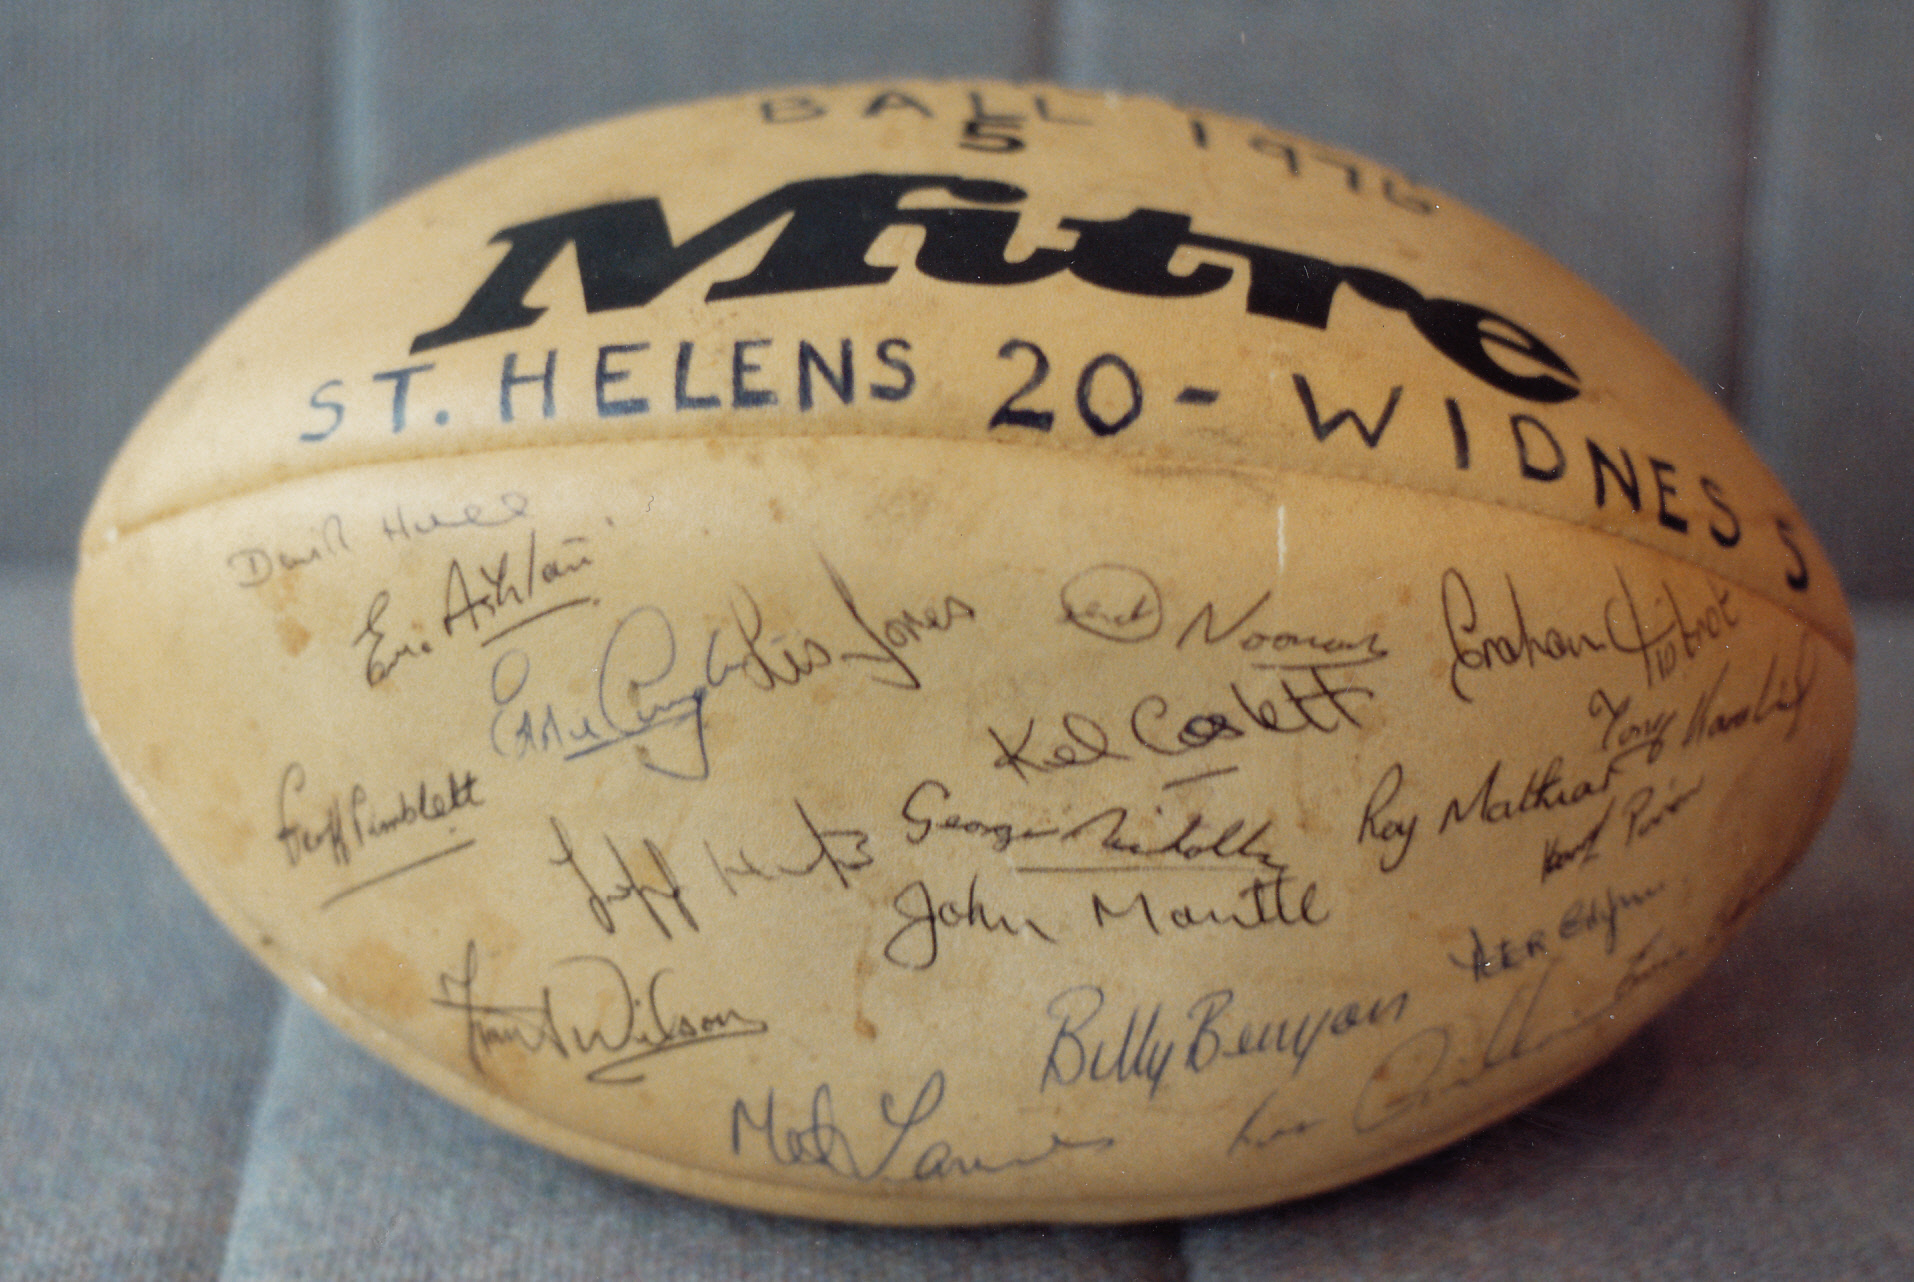 BALL 1976
5
Mitre
ST. HELENS 20 - WIDNES 5
David Hull
Eric Ashton
Eddie Cunningham
Les Jones
Noonan
Graham Liptrot
Kel Coslett
Tony Karalius
Geoff Pimblett
Jeff Heaton
George Nicholls
Roy Mathias
John Mantle
Harry Pinner
Frank Wilson
Billy Benyon
Mel James